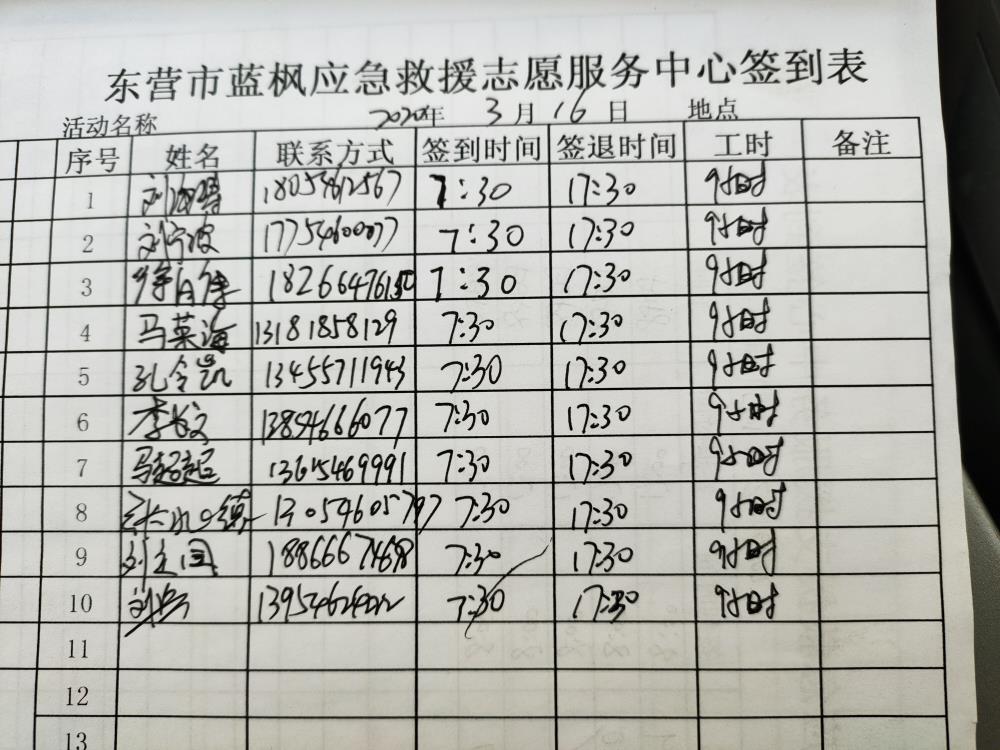 东营市蓝枫应急救援志愿服务中心签到表
活动名称 2020年 3月16日 地点
序号 姓名 联系方式 签到时间 签退时间 工时 备注
1 7:30 17:30 9小时
2 刘宁波 17754600077 7:30 17:30 9小时
3 7:30 17:30 9小时
4 马菜海 13181858129 7:30 17:30 9小时
5 孔令凯 13455711943 7:30 17:30 9小时
6 李长文 13854666077 7:30 17:30 9小时
7 马超超 13615469991 7:30 17:30 9小时
8 13054605797 7:30 17:30 9小时
9 刘立国 18866674698 7:30 17:30 9小时
10 7:30 17:30 9小时
11
12
13